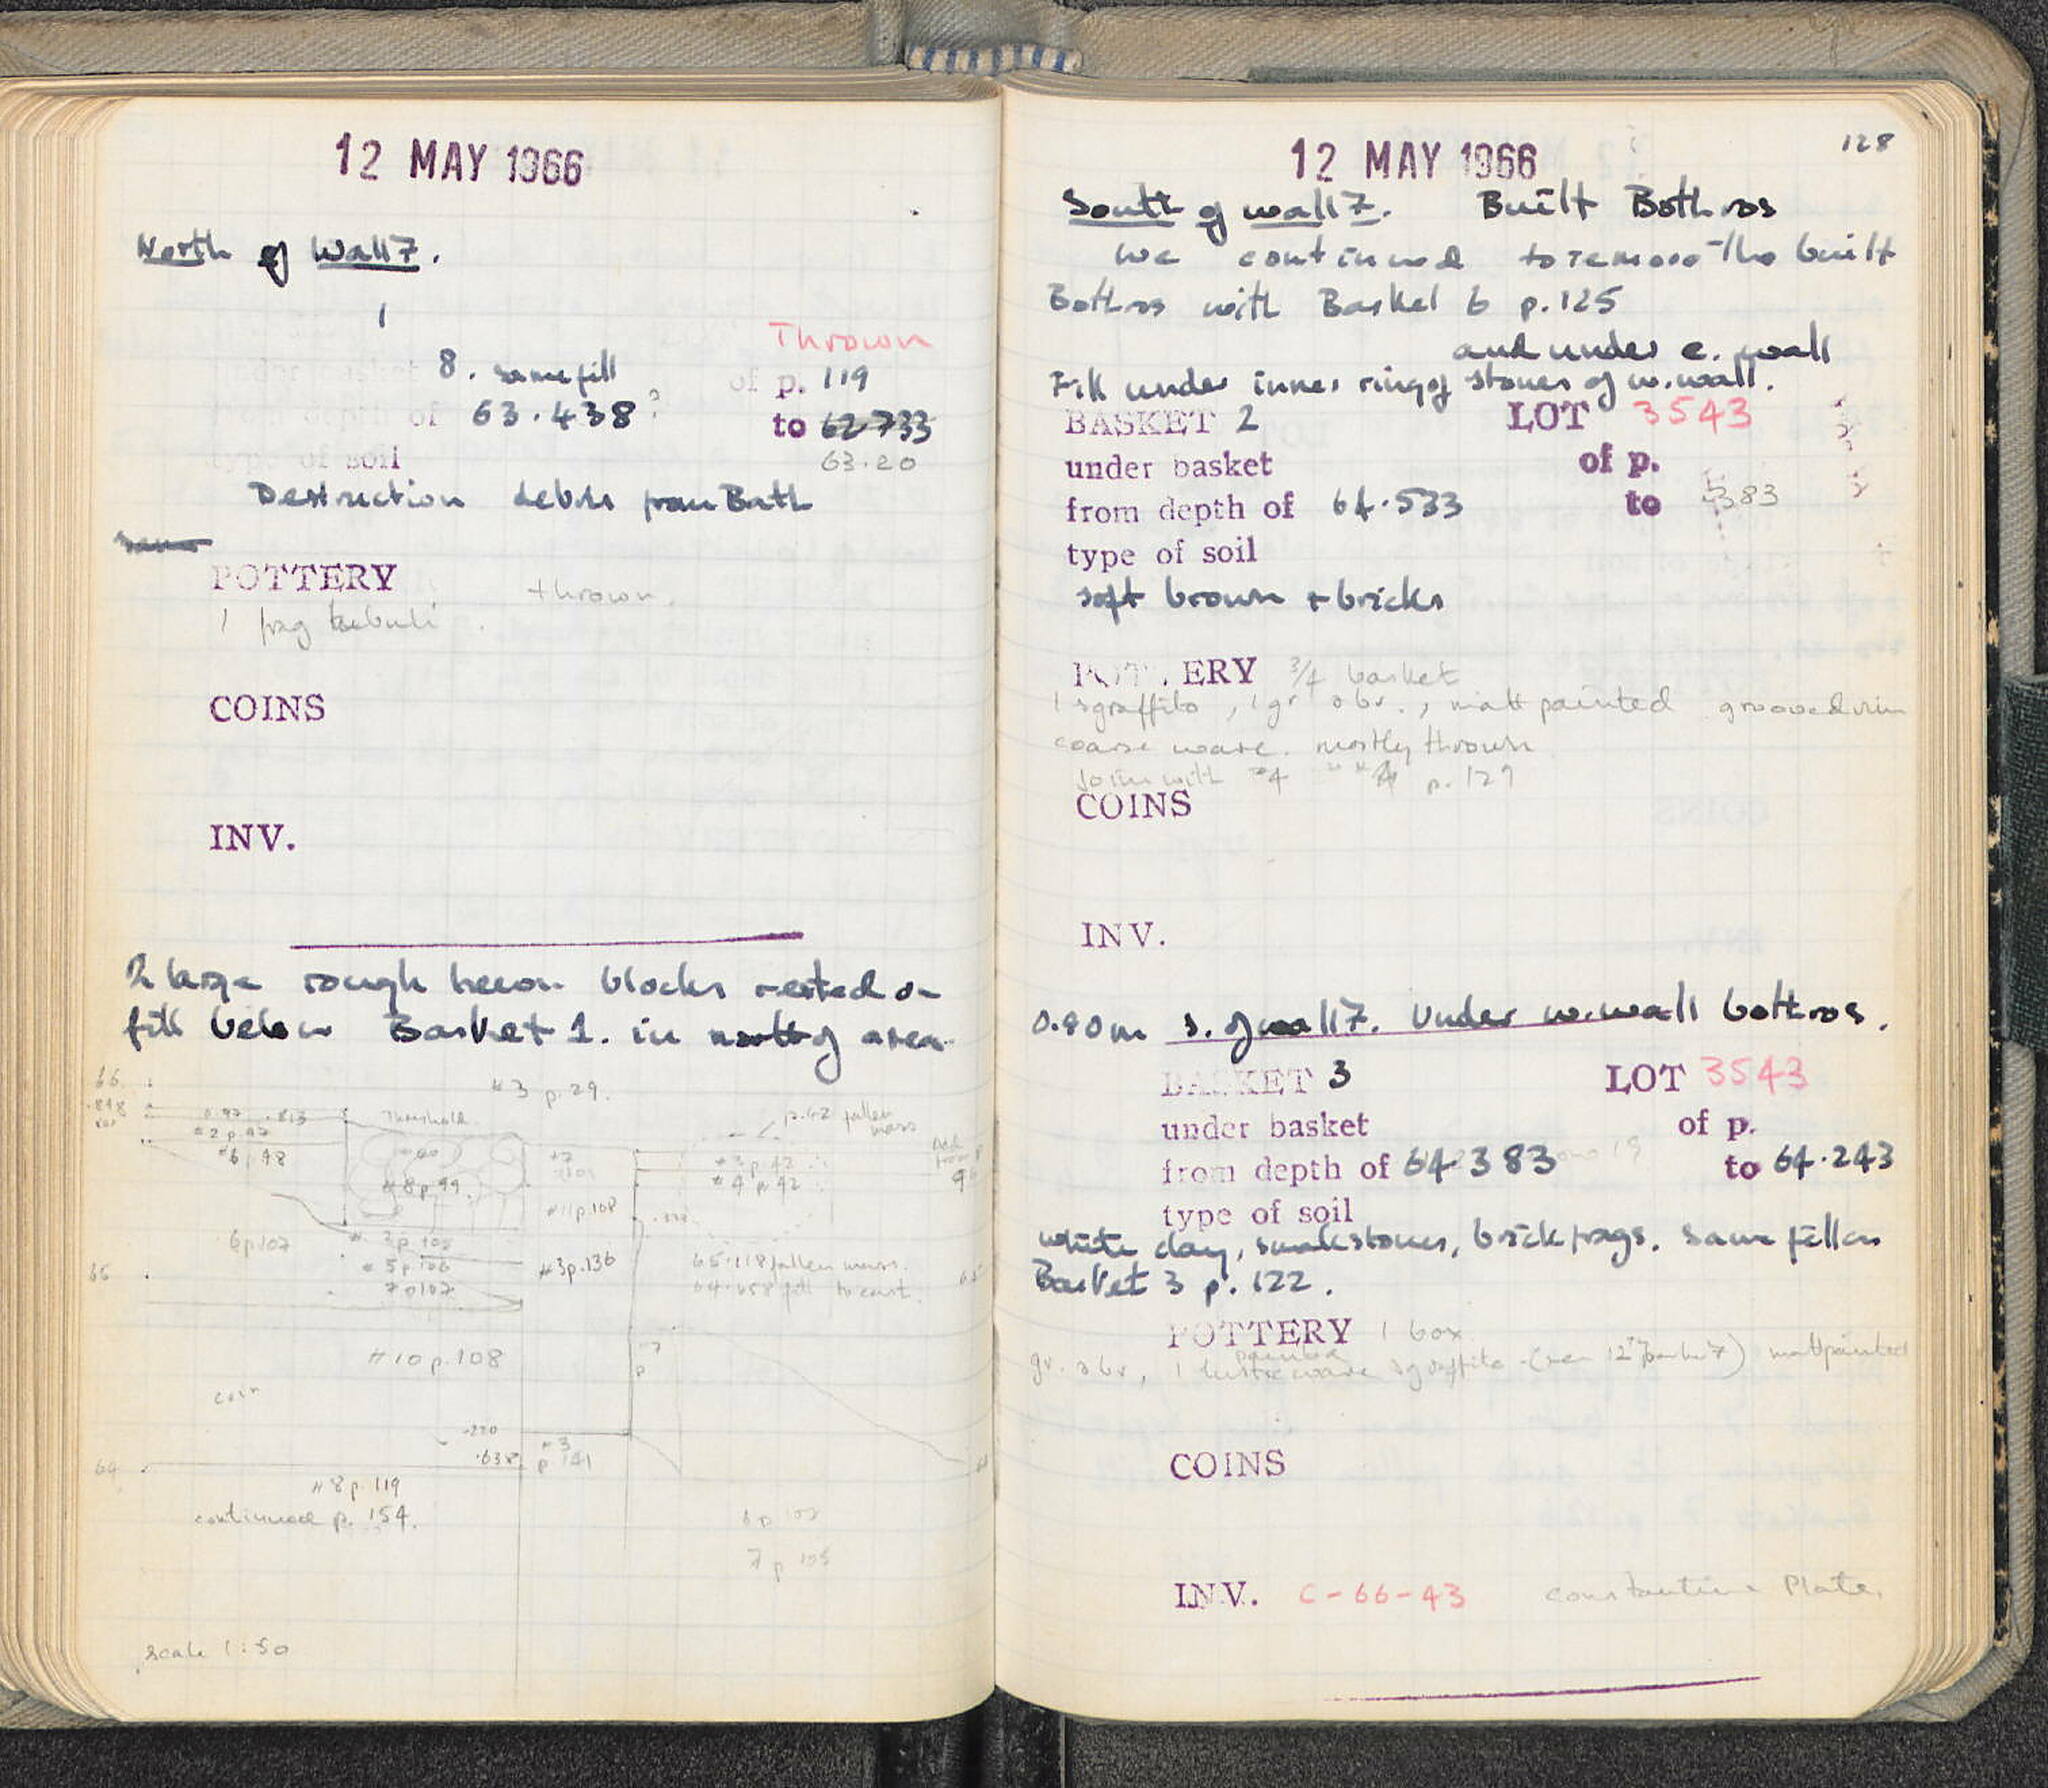 12 MAY 1966
North of Wall 7.
1
Thrown
8. same fill of p. 119
from depth of 63.438? to 62.733
type of soil 63.20
Destruction debris from Bath
same
POTTERY thrown.
1 frag tubuli.
COINS
INV.
2 large rough hewn blocks rested on
fill below Basket 1. in north of area.
66 #3 p. 29.
.813 Threshold p. 42 fallen mass
#2 p. 97
#6 p. 98 #3 p. 42
#8 p. 99. #4 p. 42
#11 p. 108
6 p 107
#5 p. 106 #3 p. 136 65.118 fallen mass.
65 7 p 107 64.658 fill to east.
#10 p. 108
coin
.220
.638
64
#8 p. 119
continued p. 154.
scale 1:50
128
12 MAY 1966
South of wall 7. Built Bothros
We continued to remove the built
Bothros with Basket 6 p. 125
and under e. wall
Fill under inner ring of stones of w. wall.
BASKET 2 LOT 3543
under basket of p.
from depth of 64.533 to .383
type of soil
soft brown + bricks
POTTERY 3/4 basket
1 sgraffito, 1 gr obv., matt painted grooved rim
coarse ware. mostly thrown
Join with #4 p. 129
COINS
INV.
0.80m s. of wall 7. Under w. wall bothros.
BASKET 3 LOT 3543
under basket of p.
from depth of 64.383 to 64.243
type of soil
white clay, small stones, brick frags. same fill as
Basket 3 p. 122.
POTTERY 1 box
painted
gr. obv, 1 lustre ware sgraffito matt painted
COINS
INV. C-66-43 Constantine Plate.